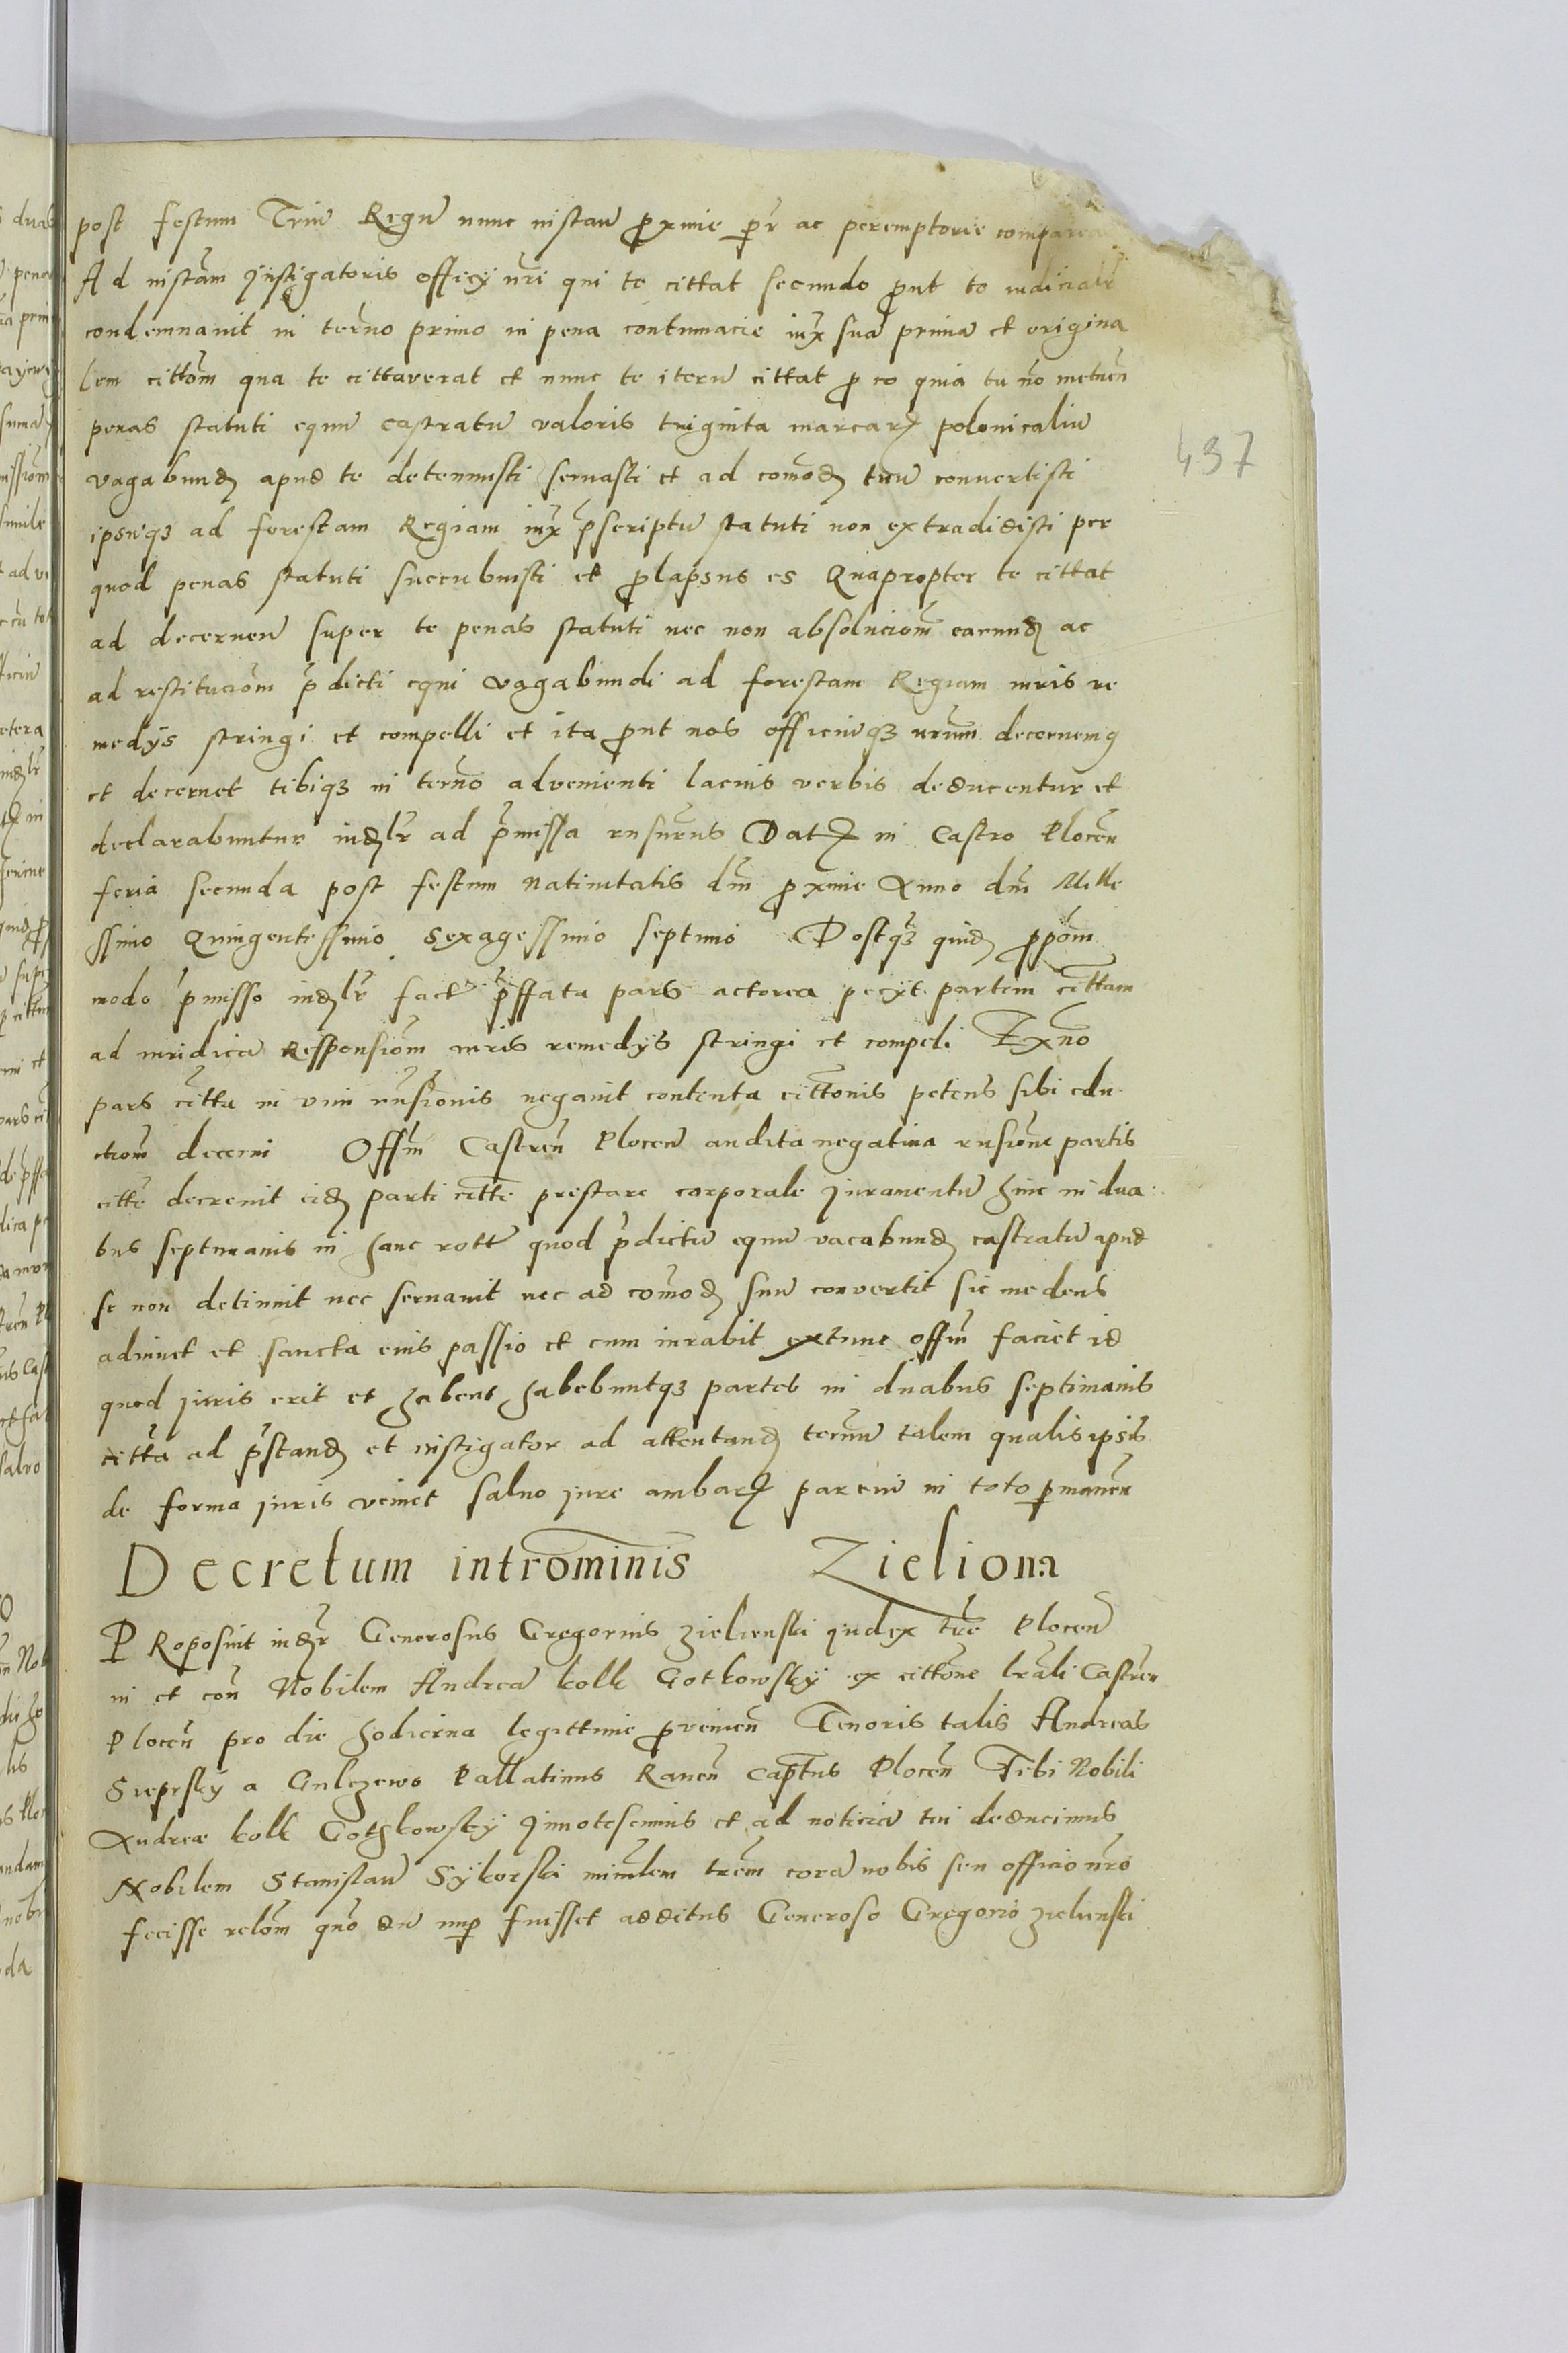 post festum Triū Regū nunc instañ ꝓxime ꝑr ac peremptorie compareas
Ad instām Instigatoris officÿ nrī qui te cittat secundo ꝓut te iudicialr̄
condemnauit in terño primo in pena contumacie iux̄ suā primā et origina
lem cittōm qua te cittaverat et nunc te iterū cittat ꝓ eo quia tu nō metueñ
penas statuti equū castratū valoris triginta marcarꝝ polonicaliū
vagabundꝫ apud te detenuisti servasti et ad comodꝫ tuū convertisti
ipsūqꝫ ad forestam Regiam iux̄ p̄scriptū statuti non extradidisti per
quod penas statuti succubuisti et ꝓlapsus es Quapropter te cittat
ad decerneñ super te penas statuti nec non absoluciōm earundꝫ ac
ad restituciōm p̄dicti equi vagabundi ad forestam Regiam iuris re
medÿs stringi et compelli et ita ꝓut nos officiūqꝫ nrūm decernemꝯ
et decernet tibiqꝫ in terño advenienti lacius verbis deducentur et
declarabuntur iudlr̄ ad p̄missa rnsurus Datꝫ in Castro Ploceñ
feria secunda post festum Natiuitatis dnī ꝓxime Anno dnī Mille
ssimo Quingentessimo Sexagessimo septimo Postqꝫ quidꝫ ꝓpōm
modo p̄misso iudlr̄ factꝫ p̄ffata pars actorea pecÿt partem cittam
ad iuridicā Respensiōm iuris remedÿs stringi et compeli Exño
pars citta in vim rnsionis negauit contenta cittonis petens sibi edu
ctiōm decerni Offm̄ Castreñ Ploceñ audita negatiua rnsione partis
citte decrevit eidꝫ parti citte prestare corporale juramentū hinc in dua
bus septimanis in hanc rottꝫ quod p̄dictū equū vacabundꝫ castratū apud
se non detinuit nec seruauit nec ad comodꝫ suū convertit sic me deus
adiuuet et sancta eius passio et cum iurabit extunc offm̄ faciet id
quod juris erit et habent habebuntqꝫ partes in duabus septimanis
citta ad p̄standꝫ et instigator ad attentandꝫ termū talem qualis ipsis
de forma juris veniet saluo jure ambarꝫ parciū in toto ꝑmaneñ
Decretum introminis Zieliona
PRoposuit iudlr̄ Generosus Gregorius Zielienski judex tre Ploceñ
in et coñ Nobilem Andreā kolk Gotkowskÿ ex cittōne lrāli Castreñ
Ploceñ pro die hodierna legittime ꝓvenieñ Tenoris talis Andreas
Sieprskÿ a Gulczewo Pallatinus Raveñ Captñs Ploceñ Tibi Nobili
Andreæ kolk Gothkowskÿ Jnnotescimus et ad noticiā tui deducimus
Nobilem Stanislaū Sÿkorski minlem trēm corā nobis seu officio nrō
fecisse relōm quō dū nuꝑ fuisset additus Generoso Gregorio Zielienski
437